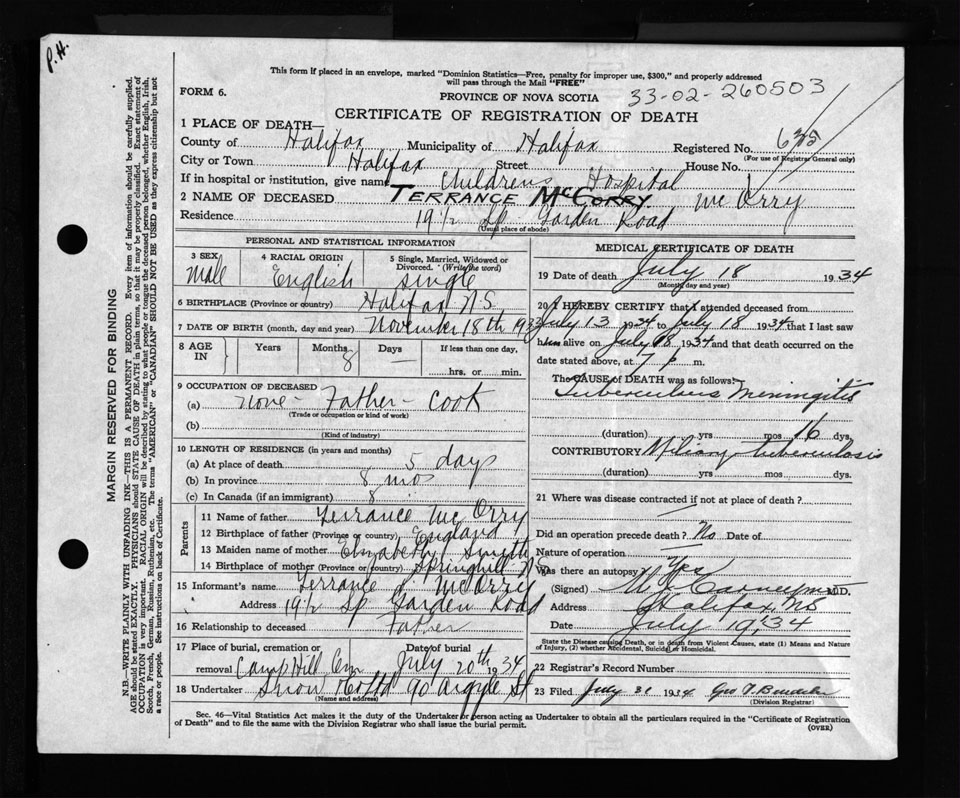 P.H.
This form if placed in an envelope, marked "Dominion Statistics—Free, penalty for improper use, $300," and properly addressed
will pass through the Mail "FREE"
FORM 6.
PROVINCE OF NOVA SCOTIA
33-02-260503
CERTIFICATE OF REGISTRATION OF DEATH
1 PLACE OF DEATH—
County of Halifax Municipality of Halifax Registered No. 635
(For use of Registrar General only)
City or Town Halifax Street House No.
If in hospital or institution, give name Childrens Hospital
2 NAME OF DECEASED TERRANCE McCORRY Mc Orry
Residence 19 1/2 Sp. Garden Road
(Usual place of abode)
PERSONAL AND STATISTICAL INFORMATION
3 SEX Male
4 RACIAL ORIGIN English
5 Single, Married, Widowed or Divorced. (Write the word) Single
6 BIRTHPLACE (Province or country) Halifax N.S.
7 DATE OF BIRTH (month, day and year) November 18th 1933
8 AGE IN Years Months 8 Days — If less than one day,
hrs. or min.
9 OCCUPATION OF DECEASED
(a) None - Father - Cook
(Trade or occupation or kind of work)
(b)
(Kind of industry)
10 LENGTH OF RESIDENCE (in years and months)
(a) At place of death 5 days
(b) In province 8 mos
(c) In Canada (if an immigrant) 8
Parents
11 Name of father Terrance Mc Orry
12 Birthplace of father (Province or country) England
13 Maiden name of mother Elizabeth Smith
14 Birthplace of mother (Province or country) Springhill N.S.
15 Informant's name Terrance J. McOrry
Address 19 1/2 Sp Garden Road
16 Relationship to deceased Father
17 Place of burial, cremation or removal Camp Hill Cem Date of burial July 20th 1934
18 Undertaker Snow 90 Argyle St
(Name and address)
MEDICAL CERTIFICATE OF DEATH
19 Date of death July 18 1934
(Month, day and year)
20 I HEREBY CERTIFY that I attended deceased from
July 13 1934 to July 18 1934 that I last saw
him alive on July 18 1934 and that death occurred on the
date stated above, at 7 p m.
The CAUSE OF DEATH was as follows:
Tuberculous Meningitis
(duration) yrs mos 16 dys.
CONTRIBUTORY Miliary tuberculosis
(duration) yrs. mos dys.
21 Where was disease contracted if not at place of death?
Did an operation precede death? No Date of
Nature of operation
Was there an autopsy? Yes
(Signed) M.D.
Address Halifax, NS
Date July 19, 34
State the Disease causing Death, or in death from Violent Causes, state (1) Means and Nature
of Injury, (2) whether Accidental, Suicidal or Homicidal.
22 Registrar's Record Number
23 Filed July 31 1934 Geo
(Division Registrar)
Sec. 46—Vital Statistics Act makes it the duty of the Undertaker or person acting as Undertaker to obtain all the particulars required in the "Certificate of Registration
of Death" and to file the same with the Division Registrar who shall issue the burial permit.
(OVER)
MARGIN RESERVED FOR BINDING
N.B.—WRITE PLAINLY WITH UNFADING INK—THIS IS A PERMANENT RECORD. Every item of information should be carefully supplied.
AGE should be stated EXACTLY. PHYSICIANS should STATE CAUSE OF DEATH in plain terms, so that it may be properly classified. Exact statement of
OCCUPATION is very important. RACIAL ORIGIN will be described by stating to what people or tongue the deceased person belonged, whether English, Irish,
Scotch, French, German, Russian, Ruthenian, etc. The terms "AMERICAN" or "CANADIAN" SHOULD NOT BE USED as they express citizenship but not
a race or people. See instructions on back of Certificate.